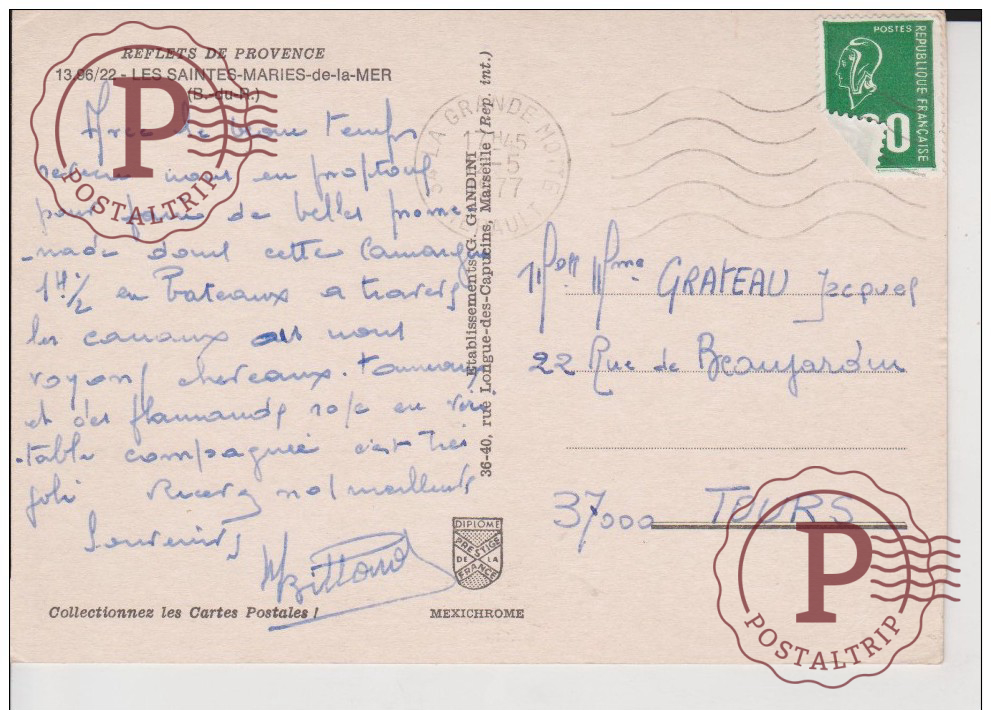 REFLETS DE PROVENCE
13.96/22 - LES SAINTES-MARIES-de-la-MER
(B.-du-R.)
Avec le beau temps
nous en profitons
pour faire de belles prome
-nade dans cette Camargue
1H ½ en Bateaux a travers
les canaux ou nous
voyons chevaux. taureaux
et des flammands rose en véri
-table compagnie c'est très
joli Recevez nos meilleurs
Souvenirs
Collectionnez les Cartes Postales !
Etablissements G. GANDINI
36-40, rue Longue-des-Capucins, Marseille (Rep. int.)
DIPLOME
PRESTIGE
DE LA
FRANCE
MEXICHROME
34 LA GRANDE MOTTE
HERAULT
H45
5
77
POSTES
REPUBLIQUE FRANÇAISE
Mme GRATEAU Jacques
22 Rue de Beaujardin
37000 TOURS
P
POSTALTRIP
P
POSTALTRIP